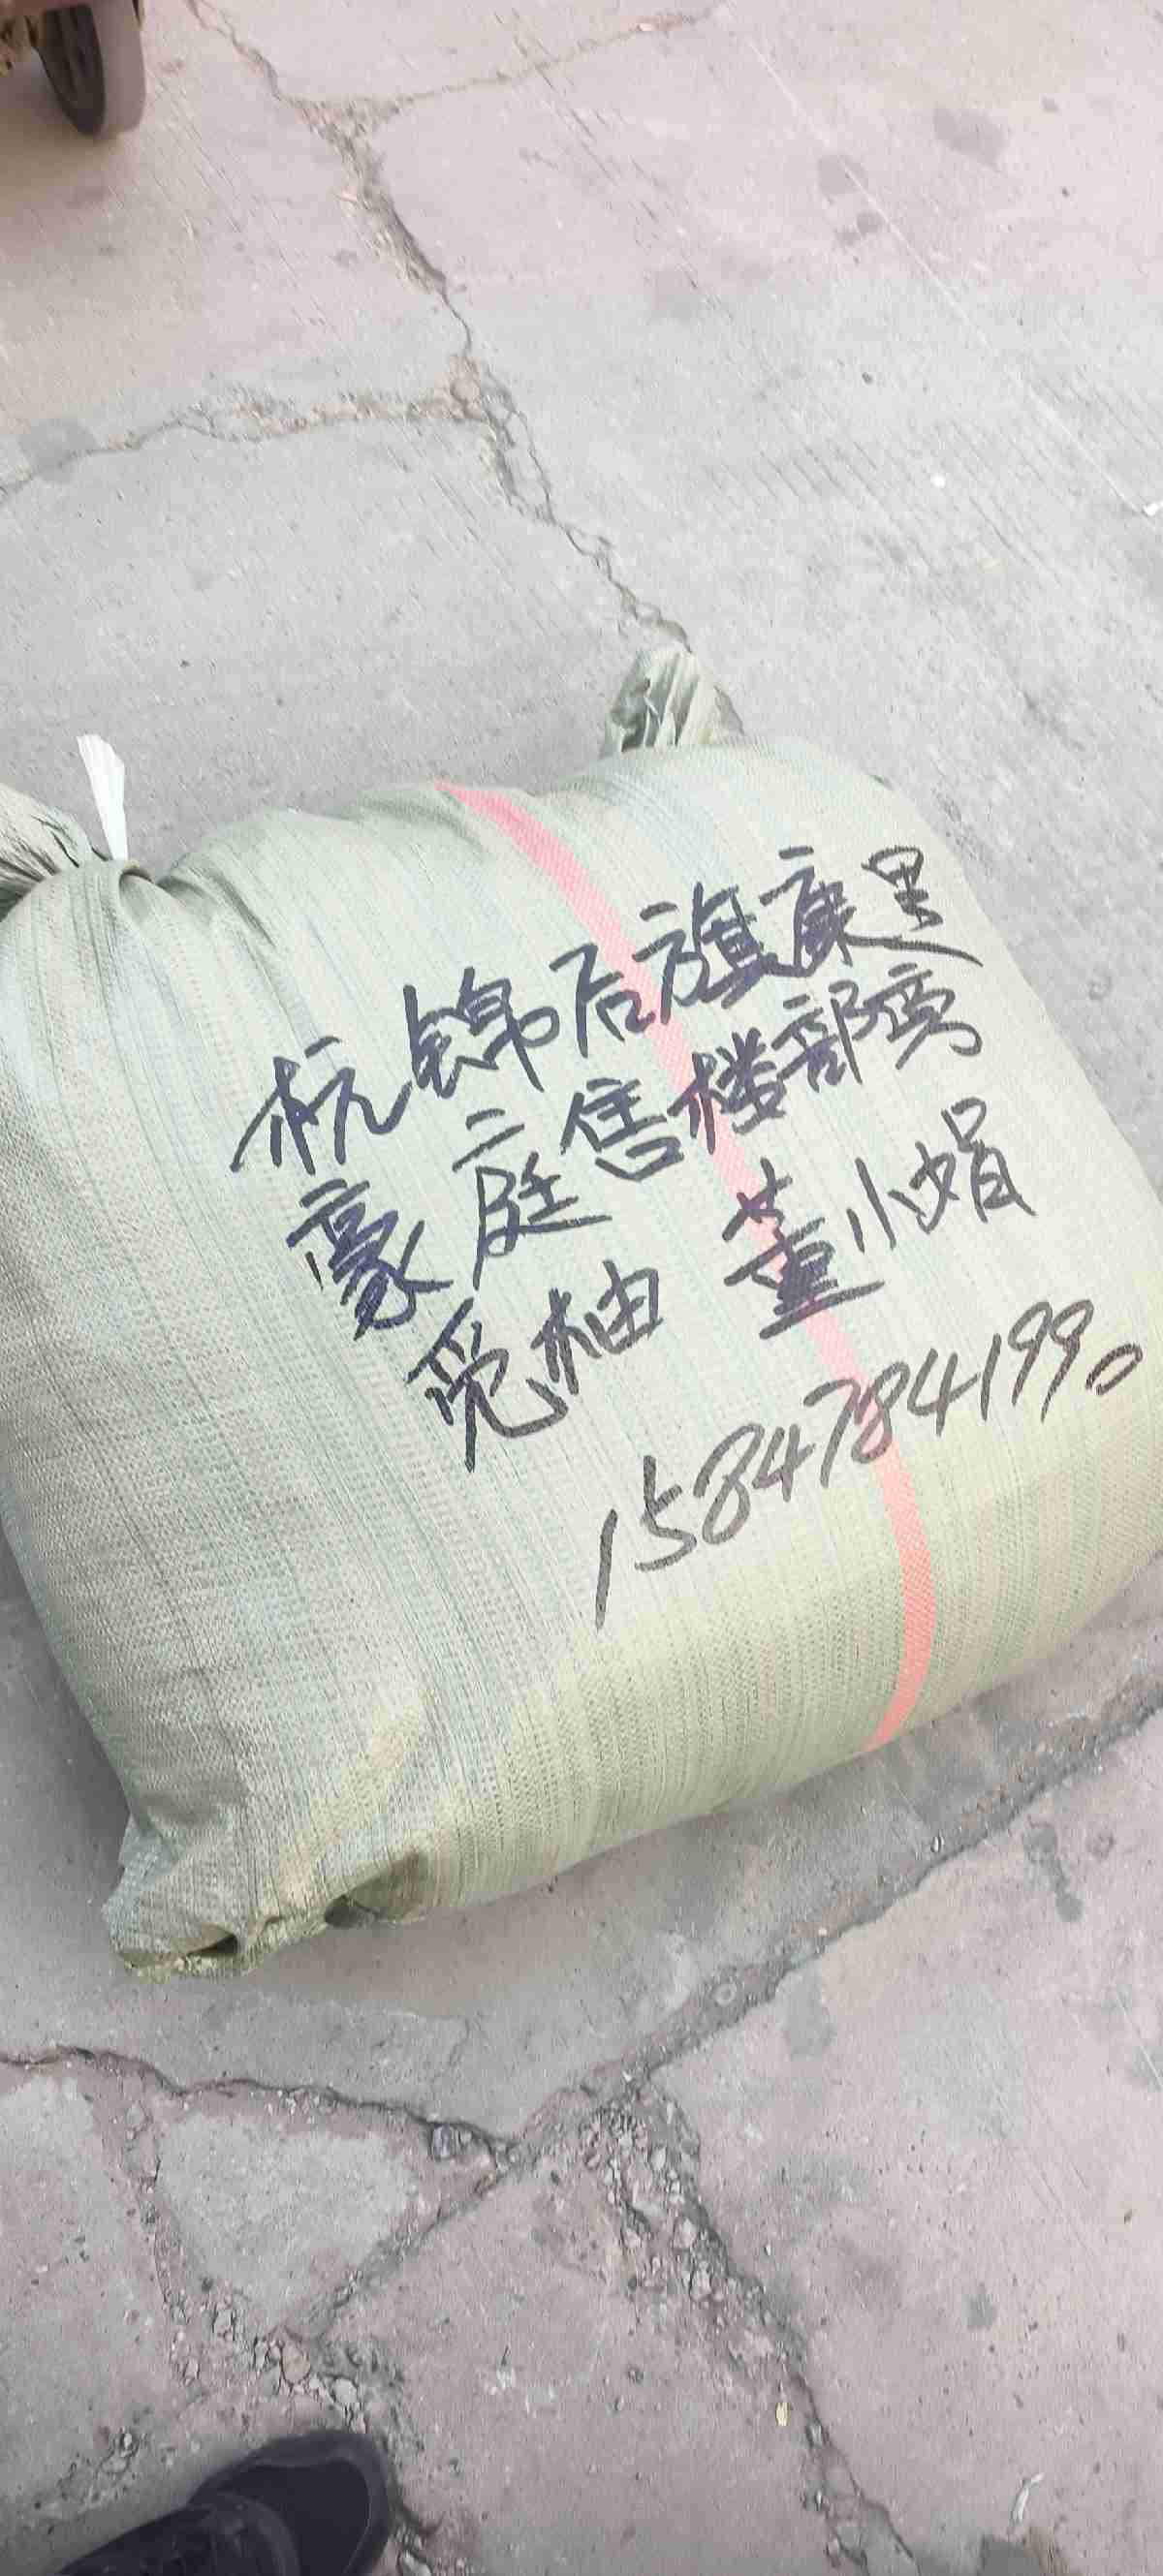 杭锦后旗康里
豪庭售楼部旁
觅柚 董小娟
15847841990